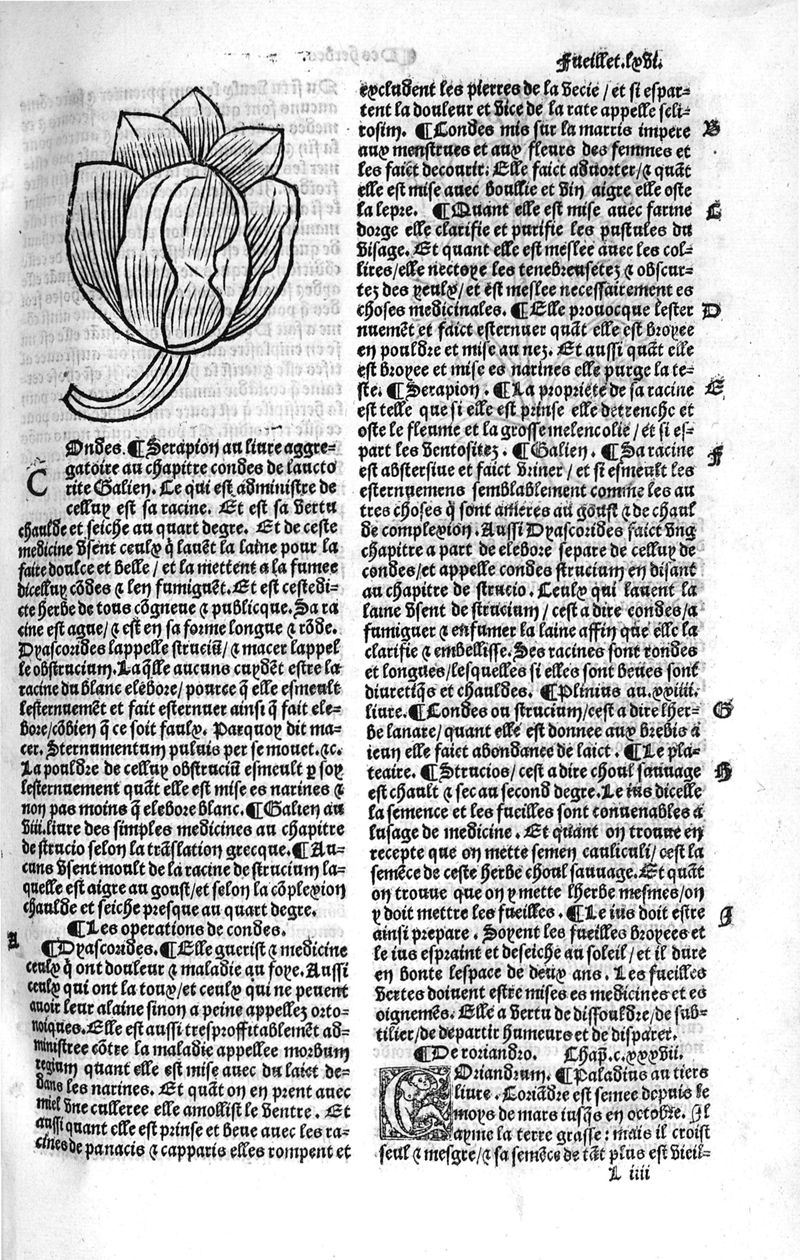 Fueillet.lxvi.
Condes. ¶Serapion au liure aggre-
gatoire au chapitre condes de laucto
rite Galien. Ce qui est administre de
celluy est sa racine. Et est sa vertu
chaulde et seiche au quart degre. Et de ceste
medicine vsent ceulx q̃ lauẽt la laine pour la
faire doulce et belle / et la mettent a la fumee
dicelluy cõdes ⁊ len fumiguẽt. Et est cestedi-
cte herbe de tous cõgneue ⁊ publicque. Sa ra
cine est ague / ⁊ est en sa forme longue ⁊ rõde.
Dyascorides lappelle struciũ / ⁊ macer lappel
le obstrucium. Laq̃lle aucuns cuydẽt estre la
racine du blanc elebore / pource q̃ elle esmeult
lesternuemẽt et fait esternuer ainsi q̃ fait ele-
bore / cõbien q̃ ce soit faulx. Parquoy dit ma-
cer. Sternumentum puluis per se mouet. ⁊c.
La pouldre de celluy obstruciũ esmeult p soy
lesternuement quãt elle est mise es narines ⁊
non pas moins q̃ elebore blanc. ¶Galien au
viii. liure des simples medicines au chapitre
de strucio selon la trãslation grecque. ¶Au-
cuns vsent moult de la racine de strucium la-
quelle est aigre au goust / et selon la cõplexion
chaulde et seiche presque au quart degre.
¶Les operations de condes.
A ¶Dyascorides. ¶Elle guerist ⁊ medicine
ceulx q̃ ont douleur ⁊ maladie au foye. Aussi
ceulx qui ont la toux / et ceulx qui ne peuent
auoir leur alaine sinon a peine appellez orto-
noiques. Elle est aussi tresproffitablemẽt ad-
ministree cõtre la maladie appellee morbum
regium quant elle est mise auec du laict de-
dans les narines. Et quãt on en prent auec
miel vne culleree elle amollist le ventre. Et
aussi quant elle est prinse et beue auec les ra-
cines de panacis ⁊ capparis elles rompent et
excludent les pierres de la vecie / et si espar-
tent la douleur et vice de la rate appelle seli-
rosim. ¶Condes mis sur la marris impere B
aux menstrues et aux fleurs des femmes et
les faict decourir: Elle faict aduorter / ⁊ quãt
elle est mise auec boullie et vin aigre elle oste
la lepre. ¶Quant elle est mise auec farine C
dorge elle clarifie et purifie les pustules du
visage. Et quant elle est meslee auec les col-
lires / elle nectoye les tenebreusetez ⁊ obscur-
tez des yeulx / et est meslee necessairement es
choses medicinales. ¶Elle prouocque lester D
nuemẽt et faict esternuer quãt elle est broyee
en pouldre et mise au nez. Et aussi quãt elle
est broyee et mise es narines elle purge la te-
ste. ¶Serapion. ¶La propriete de sa racine E
est telle que si elle est prinse elle detrenche et
oste le fleume et la grosse melencolie / et si es-
part les ventositez. ¶Galien. ¶Sa racine F
est abstersiue et faict vriner / et si esmeult les
esternuemens semblablement comme les au
tres choses q̃ sont ameres au goust ⁊ de chaul
de complexion. Aussi Dyascorides faict vng
chapitre a part de elebore separe de celluy de
condes / et appelle condes strucium en disant
au chapitre de strucio. Ceulx qui lauent la
laine vsent de strucium / cest a dire condes / a
fumiguer ⁊ enfumer la laine affin que elle la
clarifie ⁊ embellisse. Ses racines sont rondes
et longues / lesquelles si elles sont beues sont
diuretiq̃s et chauldes. ¶Plinius au. xxiiii.
liure. ¶Condes ou strucium / cest a dire lher- G
be lanare / quant elle est donnee aux brebis a
ieun elle faict abondance de laict. ¶Le pla-
teaire. ¶Strucios / cest a dire choul sauuage H
est chault ⁊ sec au second degre. Le ius dicelle
la semence et les fueilles sont conuenables a
lusage de medicine. Et quant on trouue en
recepte que on mette semen cauliculi / cest la
semẽce de ceste herbe choul sauuage. Et quãt
on trouue que on y mette lherbe mesmes / on
y doit mettre les fueilles. ¶Le ius doit estre I
ainsi prepare. Soyent les fueilles broyees et
le ius espraint et deseiche au soleil / et il dure
en bonte lespace de deux ans. Les fueilles
vertes doiuent estre mises es medicines et es
oignemẽs. Elle a vertu de dissouldre / de sub-
tilier / de departir humeurs et de disparer.
¶De coriandro. Chap. c.xxxvii.
Coriandrum. ¶Paladius au tiers
liure. Coriãdre est semee depuis le
moys de mars iusq̃s en octobre. Il
ayme la terre grasse: mais il croist
seul ⁊ mesgre / ⁊ sa semẽce de tãt plus est vieil-
L iiii